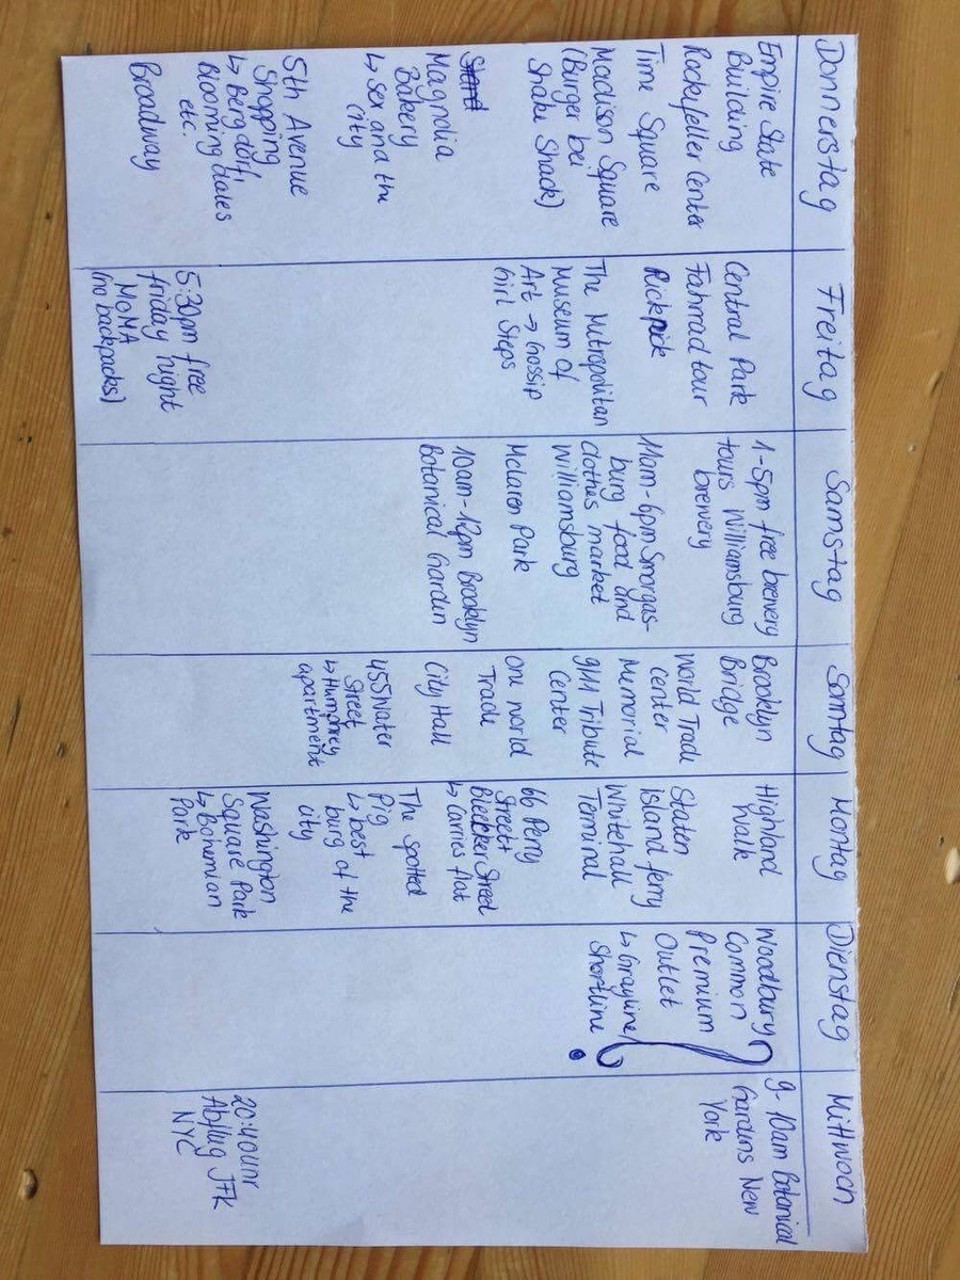 Donnerstag
Empire State
Building
Rockyfeller Center
Time Square
Madison Square
(Burger bei
Shake Shack)
Magnolia
Bakery
↳ Sex and the
City
5th Avenue
Shopping
↳ Bergdorf,
Bloomingdales
etc.
Broadway
Freitag
Central Park
Fahrradtour
Rickpick
The Metropolitan
Museum of
Art → Gossip
Girl Steps
5:30pm free
friday night
MoMA
(no backpacks)
Samstag
1-5pm free brewery
tours Williamsburg
brewery
11am-6pm Smorgas-
burg food and
clothes market
Williamsburg
Mclaren Park
10am-12pm Brooklyn
Botanical Garden
Sonntag
Brooklyn
Bridge
World Trade
Center
Memorial
9/11 Tribute
Center
One World
Trade
City Hall
455 Water
Street
↳ Humphrey
apartment
Montag
Highland
Walk
Staten
Island ferry
Whitehall
Terminal
66 Perry
Street
Bleeker Street
↳ Carries flat
The spotted
Pig
↳ best
burg of the
city
Washington
Square Park
↳ Bohemian
Park
Dienstag
Woodbury
Common
Premium
Outlet
↳ Grayline/
Shortline
?
Mittwoch
9-10am Botanical
Gardens New
York
20:40uhr
Abflug JFK
NYC